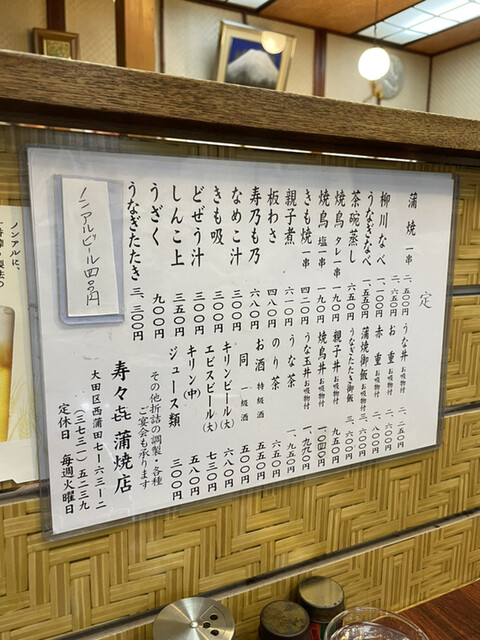 定
蒲焼 一串
柳川なべ 二、一〇〇円
うなぎなべ 一、五五〇円
茶碗蒸し 六五〇円
焼鳥 タレ一串 一九〇円
焼鳥 塩一串 一九〇円
きも焼 一串 四二〇円
親子煮 六一〇円
板わさ 四八〇円
寿乃も乃 六八〇円
なめこ汁 三五〇円
きも吸 三〇〇円
どぜう汁 三〇〇円
しんこ上 三五〇円
うざく 九〇〇円
うなぎたたき 三、三〇〇円
ノンアルビール 四〇〇円
うな丼 お吸物付 二、二五〇円
お重 お吸物付
赤重 お吸物付 二、八〇〇円
蒲焼御飯 お吸物付
うなぎたたき御飯 三、六〇〇円
親子丼 お吸物付 九五〇円
焼鳥丼 お吸物付
うな玉丼 お吸物付 一、九九〇円
うな茶 一、九五〇円
のり茶 六五〇円
お酒 特級酒 五五〇円
同 一級酒 五〇〇円
キリンビール(大) 六八〇円
エビスビール(大) 七三〇円
キリン(中) 五八〇円
ジュース類 三〇〇円
その他折詰の調製・各種
ご宴会も承ります
寿々㐂 蒲焼店
大田区西蒲田七ー六三ー二
(三七三一)五二三九
定休日 毎週火曜日
ノンアルに、